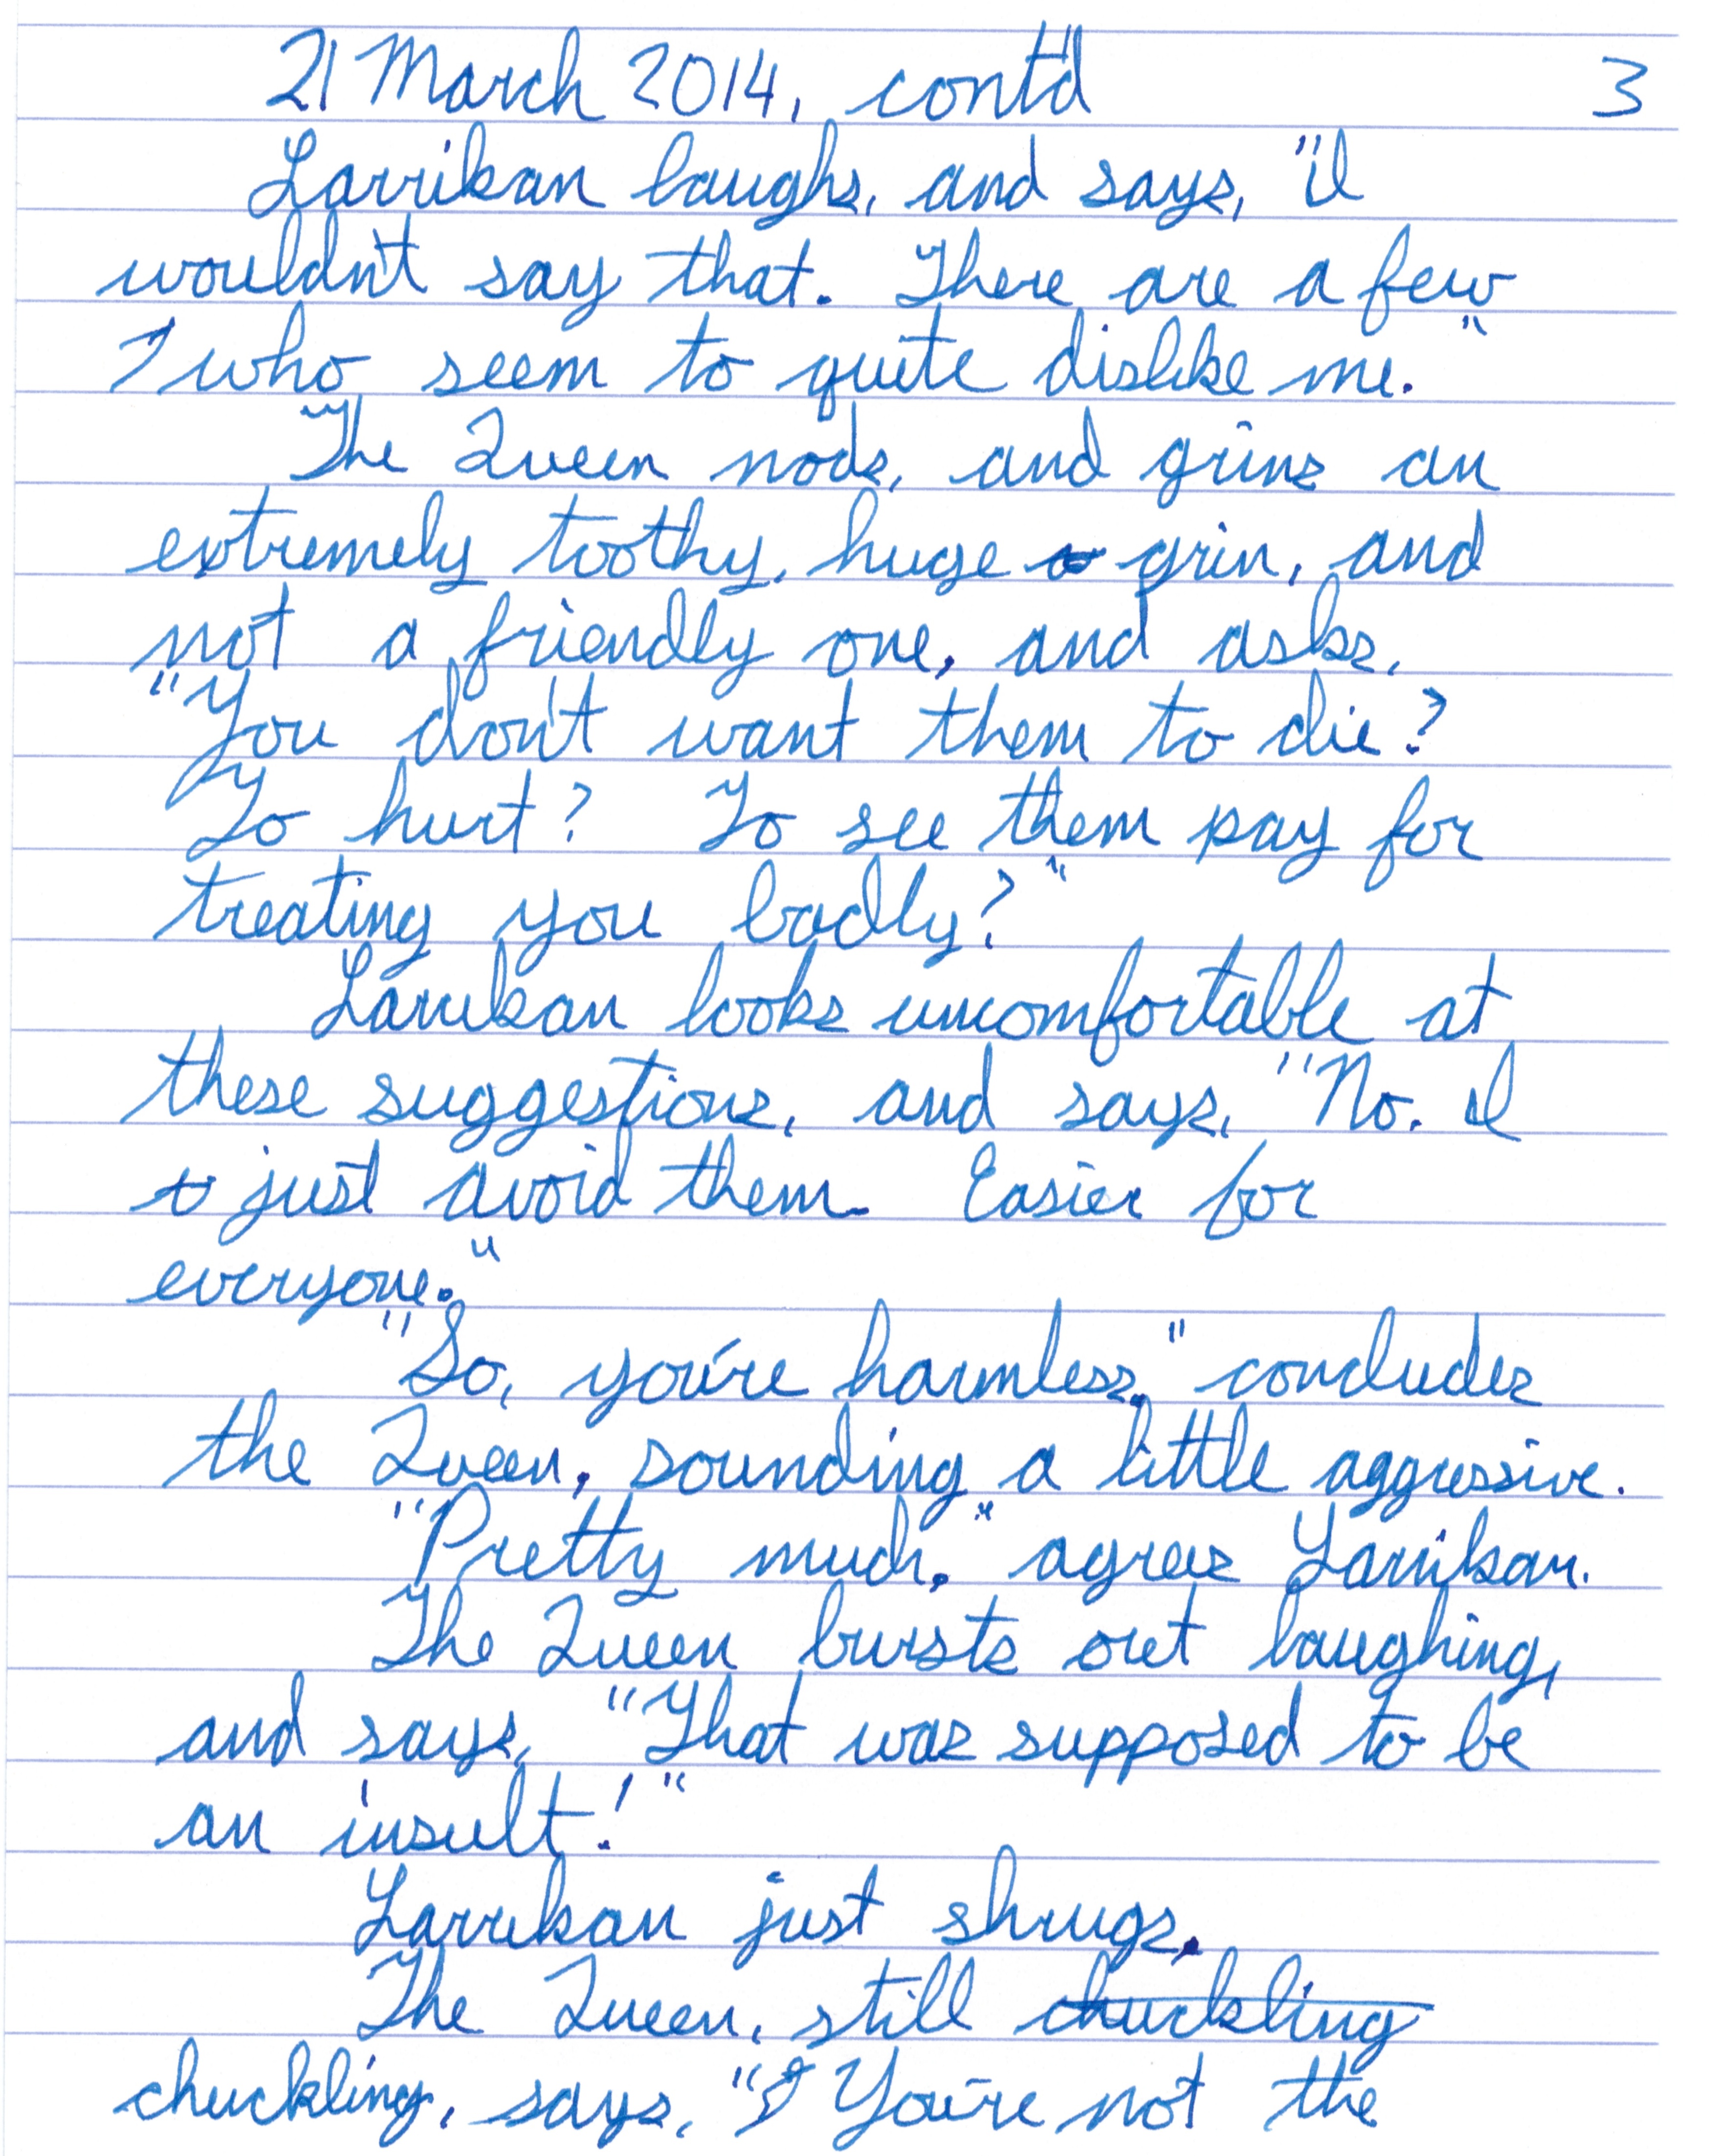 21 March 2014, cont'd 3
Larrikan laughs, and says, "I
wouldn't say that. There are a few
who seem to quite dislike me."
The Queen nods, and grins an
extremely toothy, huge grin, and
not a friendly one, and asks,
"You don't want them to die?
To hurt? To see them pay for
treating you badly?"
Larrikan looks uncomfortable at
these suggestions, and says, "No. I
just avoid them. Easier for
everyone."
"So, you're harmless," concludes
the Queen, sounding a little aggressive.
"Pretty much," agrees Larrikan.
The Queen bursts out laughing,
and says, "That was supposed to be
an insult!"
Larrikan just shrugs.
The Queen, still chuckling
chuckling, says, "You're not the